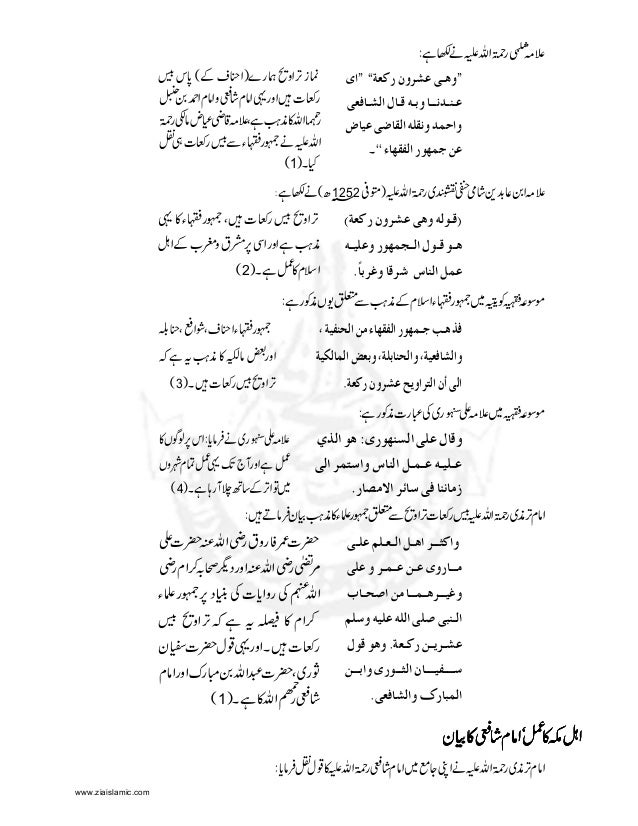 علامہ شلبی رحمۃ اللہ علیہ نے لکھا ہے:
”وهـى عشرون ركعة“ ”اى
عـنـدنـــا وبـه قــال الشـافعى
واحمد ونقله القاضى عياض
عن جمهور الفقهاء“۔
نماز تراویح ہمارے (احناف کے) پاس بیس
رکعات ہیں اور یہی امام شافعی و امام احمد بن حنبل
رحمہما اللہ کا مذہب ہے، علامہ قاضی عیاض مالکی رحمۃ
اللہ علیہ نے جمہور فقہاء سے بیس رکعات ہی نقل
کیا۔ (1)
علامہ ابن عابدین شامی حنفی نقشبندی رحمۃ اللہ علیہ (متوفی 1252ھ) نے لکھا ہے:
(قـولـه وهى عشرون ركعة)
هـو قـول الـجمهور وعليـه
عمل الناس شرقا وغرباً.
تراویح بیس رکعات ہیں، جمہور فقہاء کا یہی
مذہب ہے اور اسی پر مشرق و مغرب کے اہل
اسلام کا عمل ہے۔ (2)
موسوعہ فقہیہ کویتیہ میں جمہور فقہاء اسلام کے مذہب سے متعلق یوں مذکور ہے:
فذهـب جـمهور الفقهاء من الحنفية ،
والشافعية، والحنابلة، وبعض المالكية
الى أن التراويح عشرون ركعة.
جمہور فقہاء احناف، شوافع، حنابلہ
اور بعض مالکیہ کا مذہب یہ ہے کہ
تراویح بیس رکعات ہیں۔ (3)
موسوعہ فقہیہ میں علامہ علی سنہوری کی عبارت مذکور ہے:
وقال على السنهورى: هو الذي
عـلـيـه عـمـل الناس واستمر الى
زماننا فى سائر الامصار.
علامہ علی سنہوری نے فرمایا: اس پر لوگوں کا
عمل ہے اور آج تک یہی عمل تمام شہروں
میں تواتر کے ساتھ چلا آرہا ہے۔ (4)
امام ترمذی رحمۃ اللہ علیہ بیس رکعات تراویح سے متعلق جمہور علماء کا مذہب بیان فرماتے ہیں:
واكثــر اهـل الـعـلم علـى
مـاروى عن عـمـر و على
وغيـرهـمـا من اصحـاب
الـنـبى صلى الله عليه وسلم
عشـريـن ركـعة. وهو قول
سـفـيــان الثـورى وابــن
المبارك والشافعى.
حضرت عمر فاروق رضی اللہ عنہ حضرت علی
مرتضیٰ رضی اللہ عنہ اور دیگر صحابہ کرام رضی
اللہ عنہم کی روایات کی بنیاد پر جمہور علماء
کرام کا فیصلہ یہ ہے کہ تراویح بیس
رکعات ہیں۔ اور یہی قول حضرت سفیان
ثوری، حضرت عبداللہ بن مبارک اور امام
شافعی رحمھم اللہ کا ہے۔ (1)
اہل مکہ کا عمل، امام شافعی کا بیان
امام ترمذی رحمۃ اللہ علیہ نے اپنی جامع میں امام شافعی رحمۃ اللہ علیہ کا قول نقل فرمایا:
www.ziaislamic.com